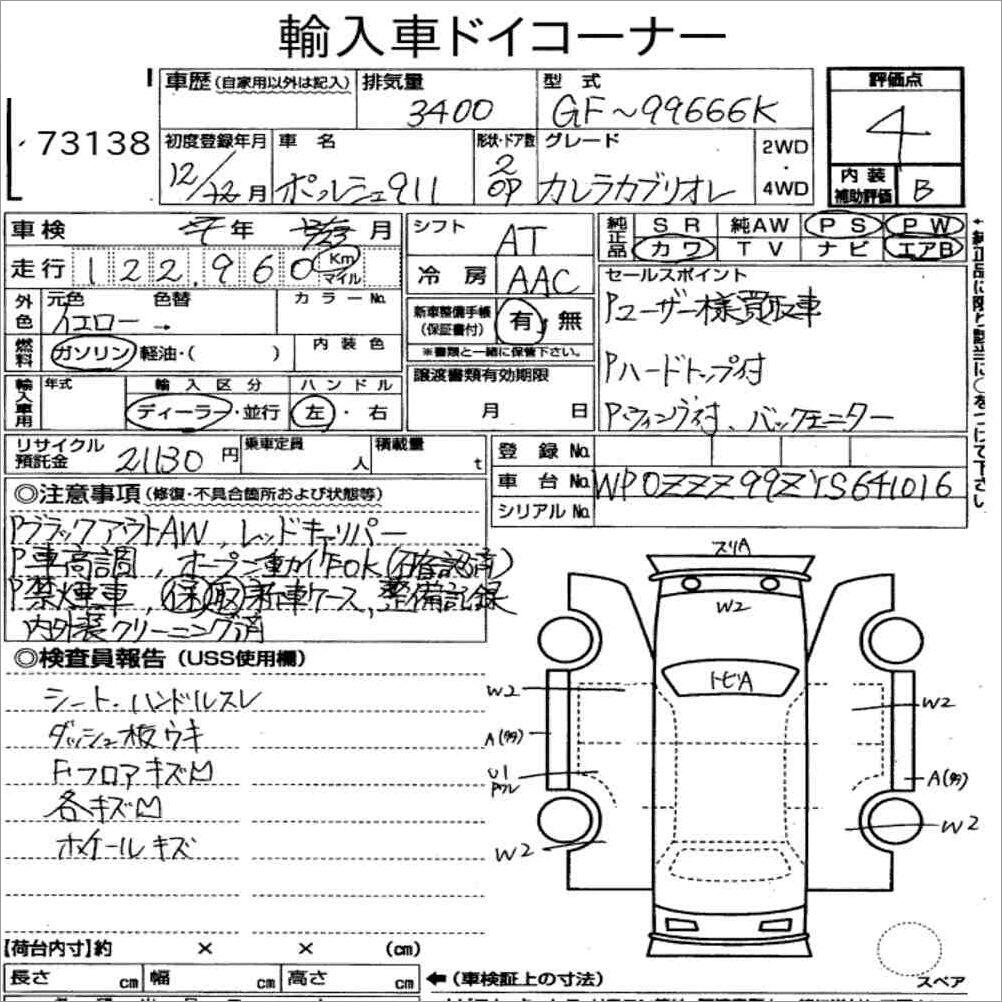 輸入車ドイコーナー
73138
車歴 (自家用以外は記入) 排気量 3400 型式 GF~99666K
評価点 4
内装補助評価 B
初度登録年月 12/12月 車名 ポルシェ911 形状・ドア数 2 OP グレード カレラカブリオレ 2WD・4WD
車検 年 月
走行 122,960 Km マイル
シフト AT
冷房 AAC
純正品 SR 純AW PS PW
カワ TV ナビ エアB
外色 元色 イエロー 色替 → カラーNo.
燃料 ガソリン・軽油・( ) 内装色
新車整備手帳 (保証書付) 有・無
※書類と一緒に保管下さい。
セールスポイント
Pユーザー様買取車
Pハードトップ付
Pウィング付、バックモニター
輸入車用 年式 輸入区分 ディーラー・並行 ハンドル 左・右
譲渡書類有効期限 月 日
リサイクル預託金 21130円 乗車定員 人 積載量 t
登録No.
車台No. WP0ZZZ99ZYS641016
シリアルNo.
◎注意事項 (修復・不具合箇所および状態等)
PブラックアウトAW、レッドキャリパー
P車高調、オープン動作OK(確認済)
P禁煙車、保取新車ケース、整備記録
内外装クリーニング済
◎検査員報告 (USS使用欄)
シート・ハンドルスレ
ダッシュ板ウキ
F・フロアキズM
各キズM
ホイールキズ
スリA
W2
トビA
W2
W2
A(タタ)
U1
W2
A(タタ)
W2
スペア
【荷台内寸】約 × × (cm)
長さ cm 幅 cm 高さ cm ←(車検証上の寸法)